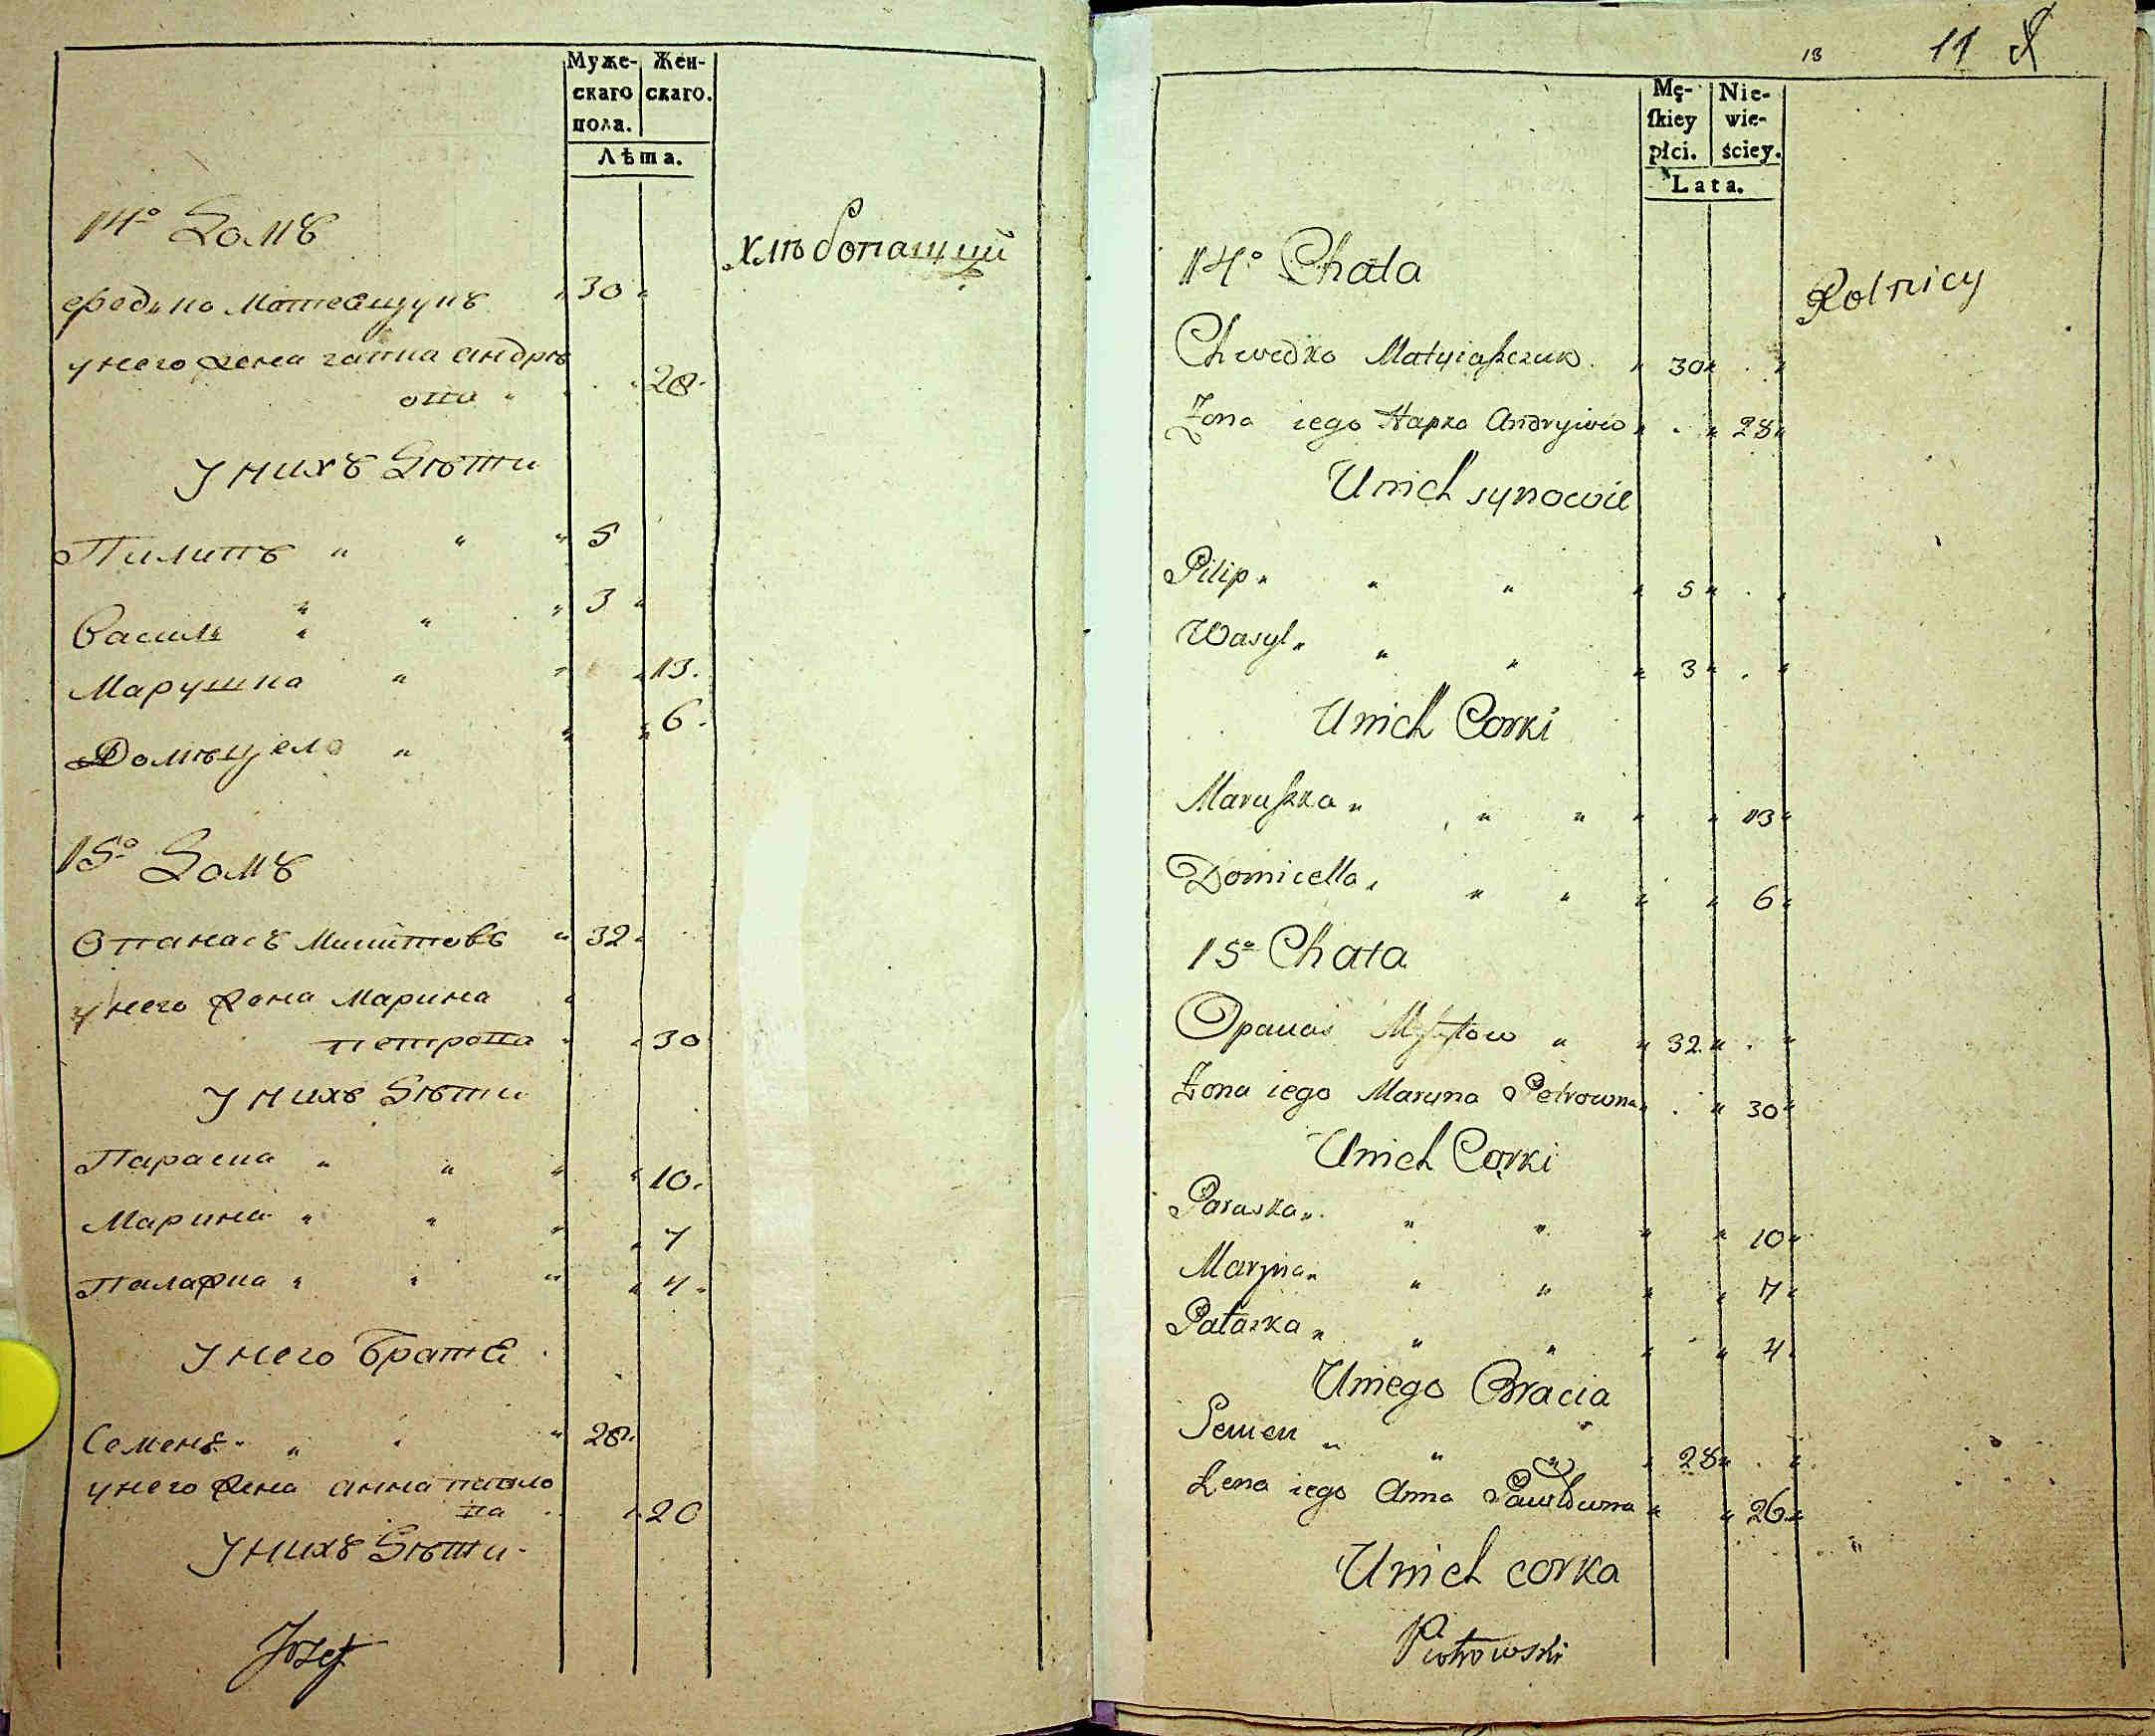 Муже-
скаго
пола.
Жен-
скаго.
Лѣта.
14º Домъ
хлѣбопащци
Федько Матеящукъ " 30 "
у него жена гапка андрѣ
ова " . " 28.
У нихъ Дѣти
Пилипъ " " " 5
Василь " " " 3 "
Марушка " " " 13.
Домѣцела " " " 6.
15º Домъ
Опанасъ Микитовъ " 32 "
у него жена Марина "
петрова " " 30
У нихъ Дѣти
Параска " " " " 10.
Марина " " " " 7
Палажка " " " " 4.
У него Братя
Семенъ " " " 28.
у него жена анна павло
ва " 20
У нихъ Дѣти
Jozef
13 11
Mę-
ſkiey
płci.
Nie-
wie-
ściey.
Lata.
14º Chata
Rolnicy
Chwedko Matyiaſzczuk " 30 " . "
Zona iego Hapka Andryiwa " . " 28 "
U nich synowie
Pilip " " " " 5 " . "
Wasyl " " " " 3 " . "
U nich Corki
Maruſzka " " " " " 13 "
Domicella " " " " " 6 "
15º Chata
Opanas " " 32 " . "
Zona iego Maryna Petrowna " . " 30 "
U nich Corki
Paraska " " " " " 10 "
Maryna " " " " " 7 "
Pałazka " " " " " 4 "
U niego Bracia
Semen " " " 28 " . "
Zena iego Anna Pawłowna " " 26 "
U nich corka
Piotrowski